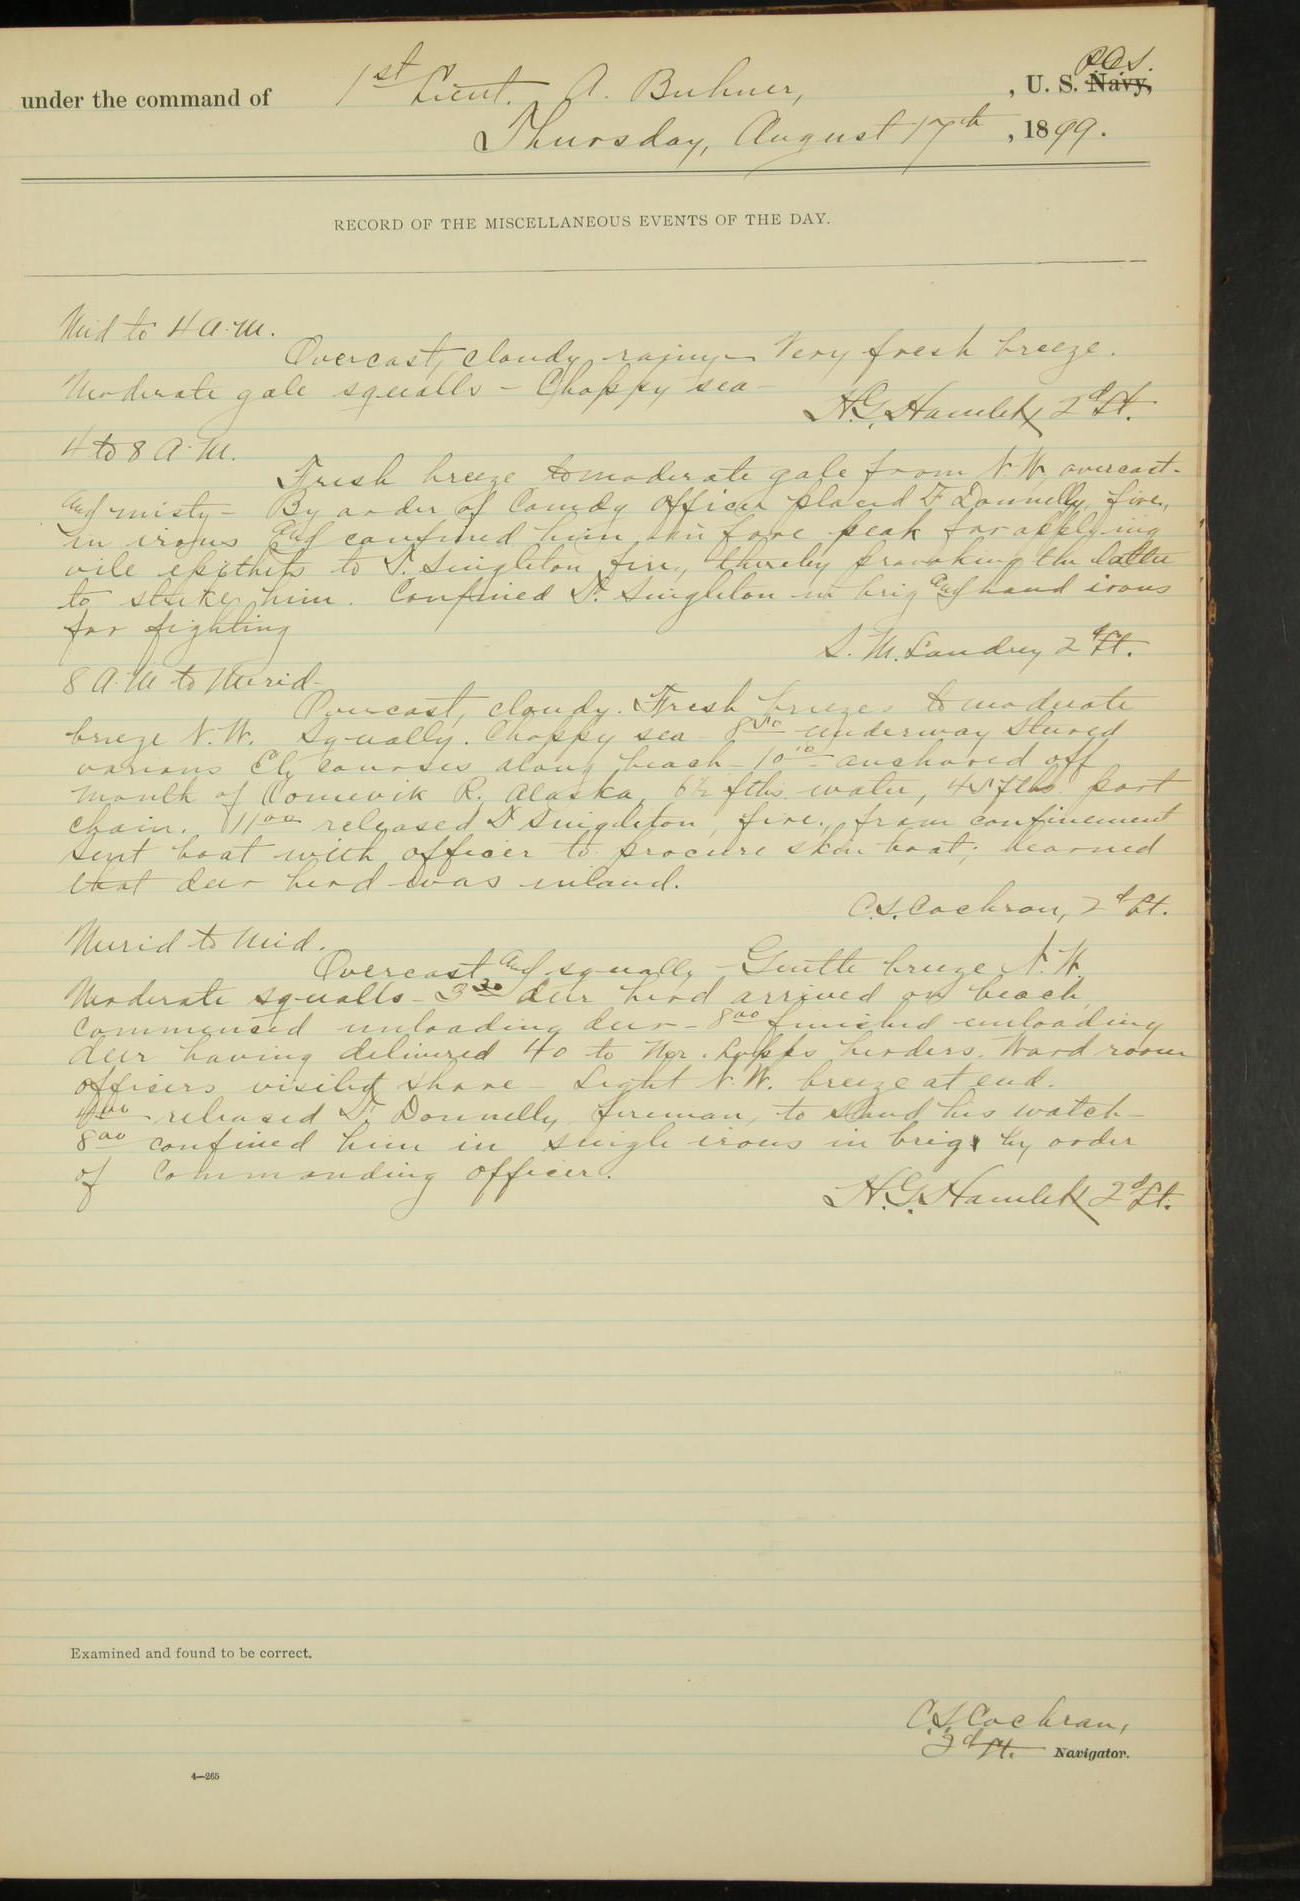 under the command of 1st Lieut. A. Buhner, , U. S. R.C.S. Navy,
Thursday, August 17th , 1899.
RECORD OF THE MISCELLANEOUS EVENTS OF THE DAY.
Mid to 4 A.M.
Overcast, cloudy, rainy - Very fresh breeze.
Moderate gale squalls - Choppy sea -
H.G. Hamlet 2d Lt.
4 to 8 A.M.
Fresh breeze to moderate gale from N.W, overcast-
and misty - By order of Comdg Officer placed F Donnelly, fire.,
in irons and confined him in fore peak for applying
vile epithets to T. Singleton fire., thereby provoking the latter
to strike him. Confined T. Singleton in brig and hand irons
for fighting
S. M. Landrey 2d Lt.
8 A.M to Merid-
Overcast, cloudy. Fresh breeze to moderate
breeze N.W. Squally. Choppy sea 8 underway steered
various Ely courses along beach - 10 anchored off
mouth of Comevik R. Alaska, 6½ fths water, 45 fths port
chain. 11 00 released T Singleton, fire., from confinement
Sent boat with officer to procure skin boat; learned
that deer herd was inland.
C.S. Cochran, 2d Lt.
Merid to Mid.
Overcast and squally - Gentle breeze N.W.
Moderate squalls - 3 30 deer herd arrived on beach,
commenced unloading deer - 8 00 finished unloading
deer having delivered 40 to Mr. Lopps herders. Ward room
officers visited shore - Light N.W. breeze at end.
4 00 - released F. Donnelly, fireman, to stand his watch -
8 00 confined him in single irons in brig, by order
of Commanding officer.
H.G. Hamlet 2d Lt.
Examined and found to be correct.
C.S. Cochran,
2d Lt. Navigator.
4—265